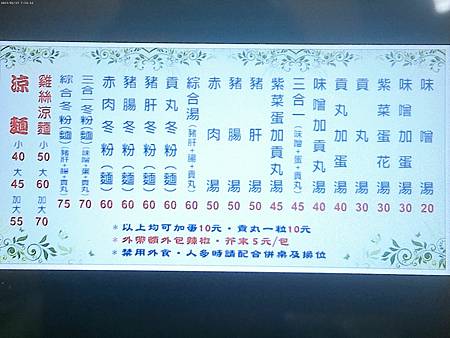 味噌湯 20
味噌加蛋湯 30
紫菜蛋花湯 30
貢丸湯 30
貢丸加蛋湯 40
味噌加貢丸湯 40
三合一(味噌+蛋+貢丸) 45
紫菜蛋加貢丸湯 45
豬肝湯 50
豬腸湯 50
赤肉湯 50
綜合湯(豬肝+腸+貢丸) 60
貢丸冬粉(麵) 60
豬肝冬粉(麵) 60
豬腸冬粉(麵) 60
赤肉冬粉(麵) 60
三合一冬粉(麵)(味噌+蛋+貢丸) 70
綜合冬粉(麵)(豬肝+腸+貢丸) 75
雞絲涼麵 小50 大60 加大70
涼麵 小40 大45 加大55
*以上均可加蛋10元,貢丸一粒10元
*外帶額外包辣椒,芥末5元/包
*禁用外食,人多時請配合併桌及換位